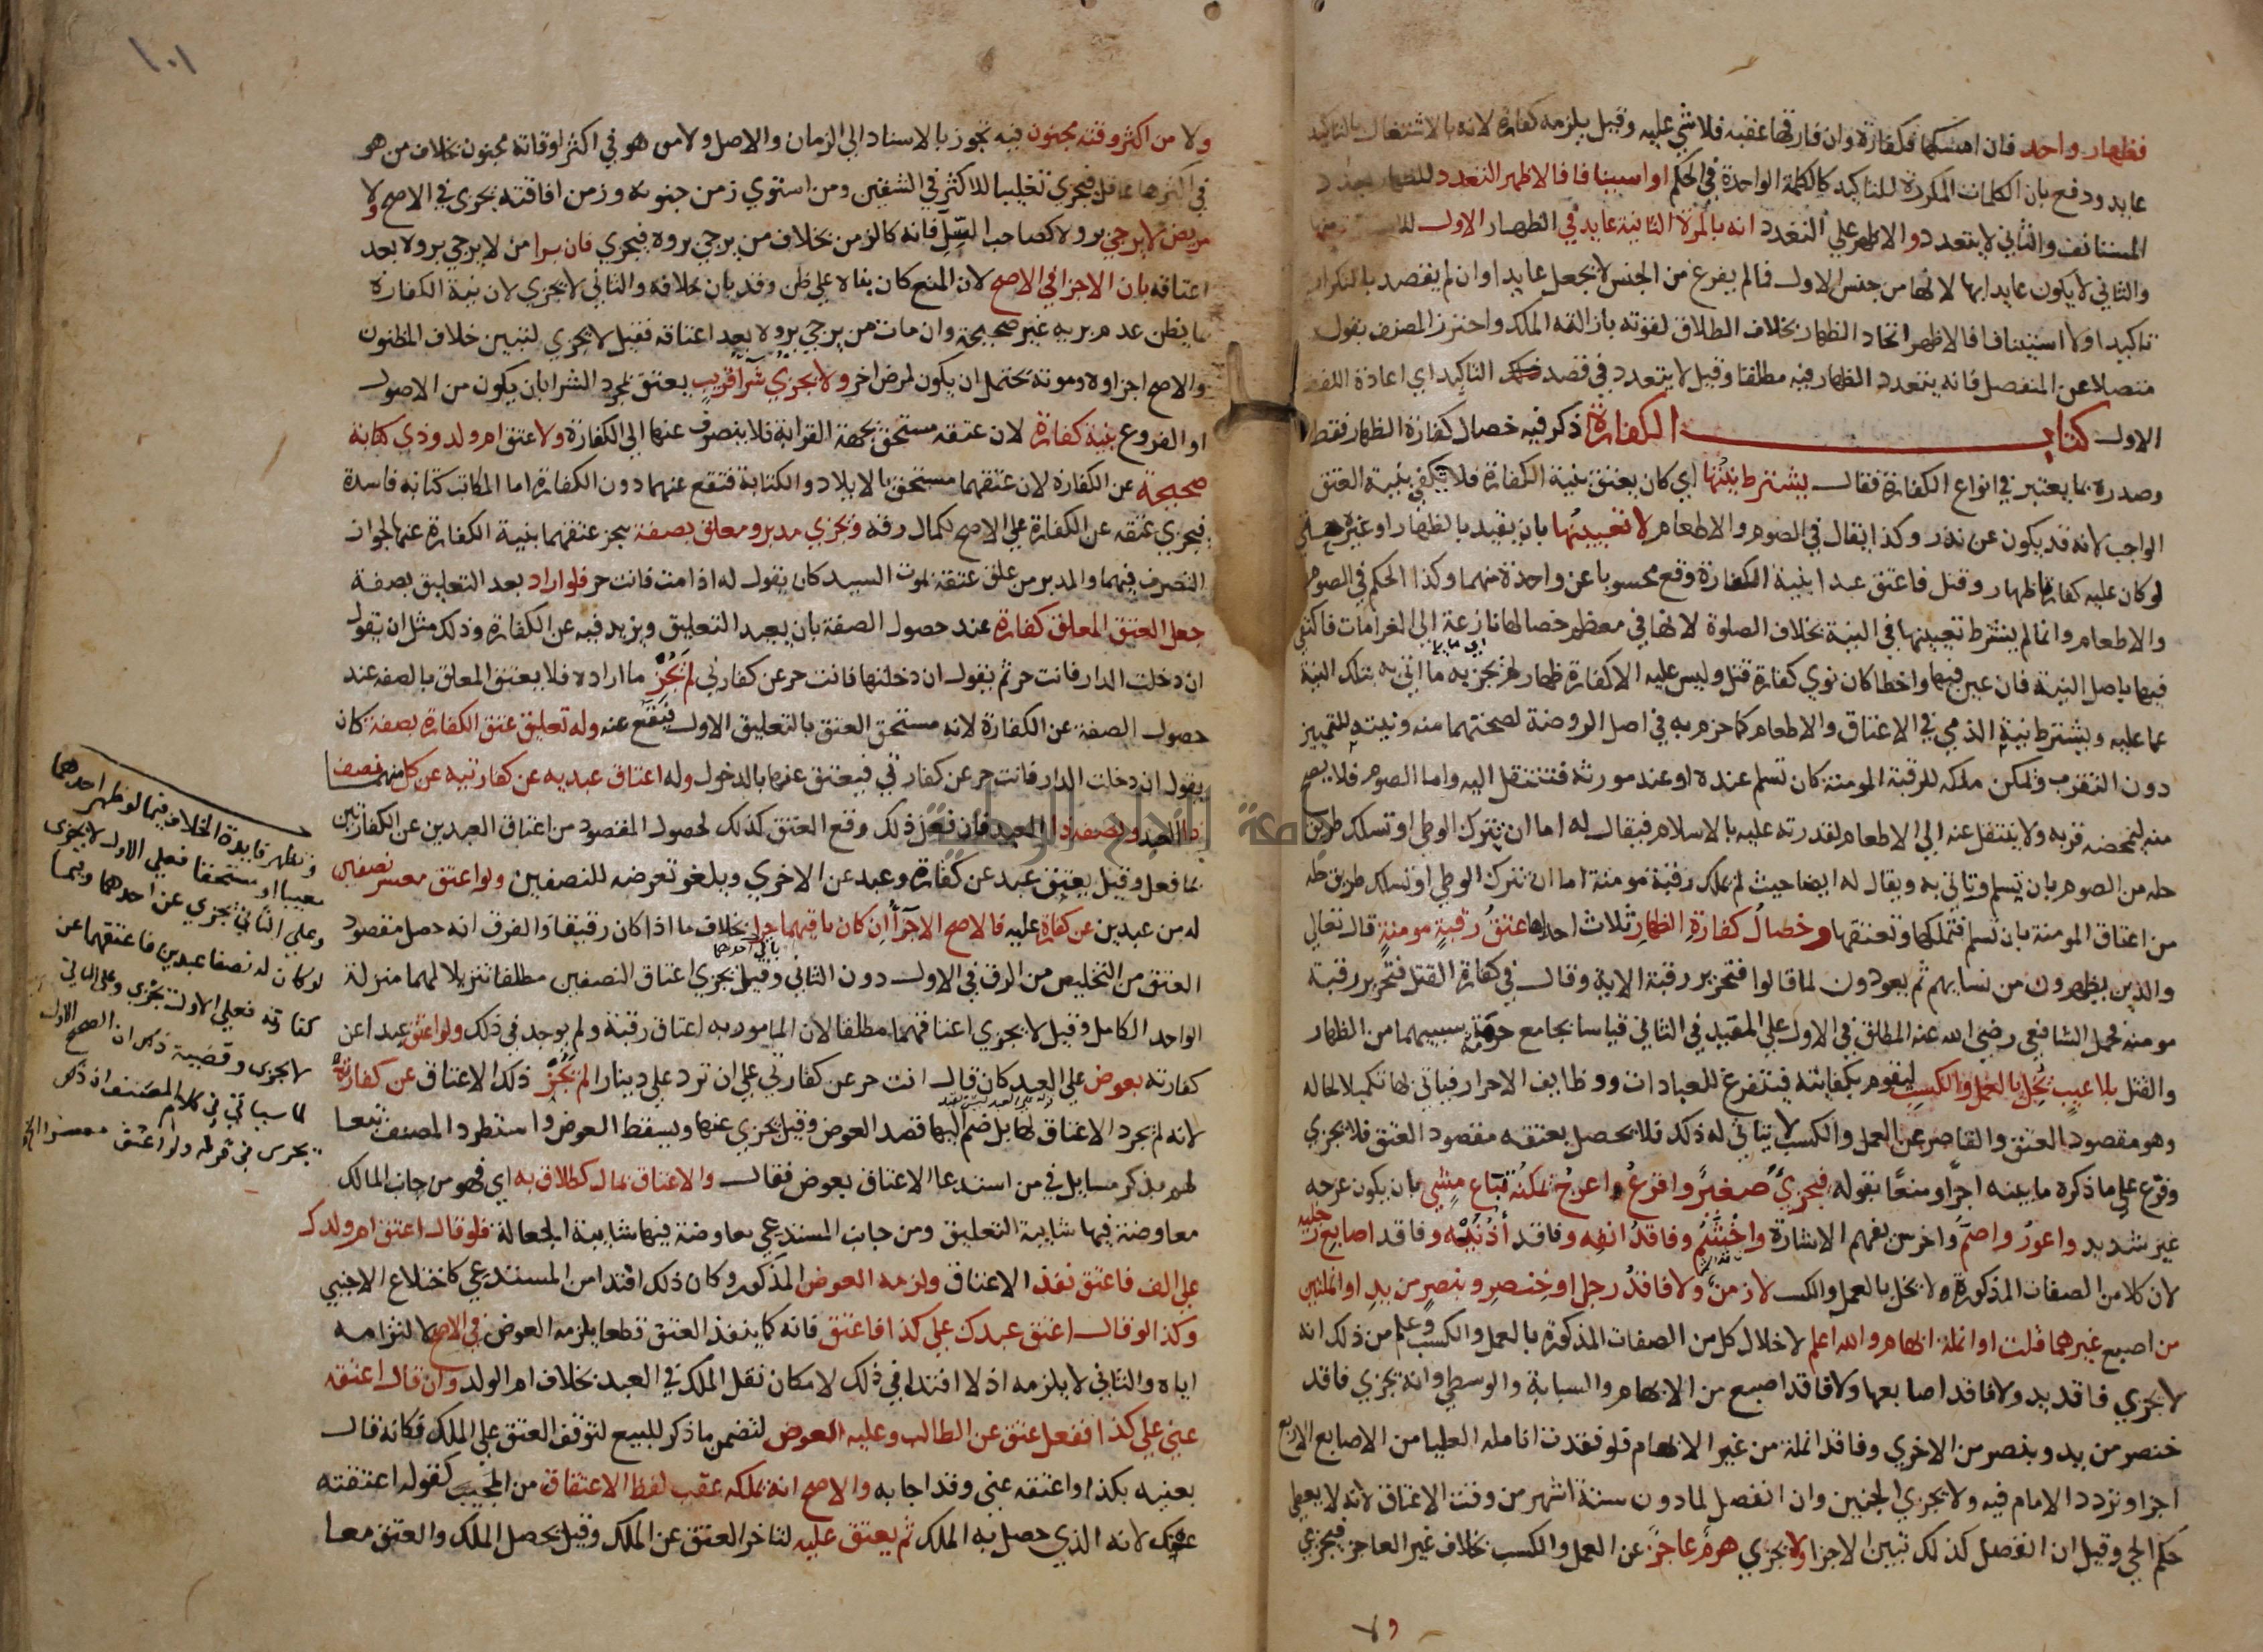 فظهار واحد فان امسكها فكفارة وان فارقها عقبه فلا شي عليه وقيل يلزمه كفارة لانه بالاشتغال بالتاكيد
عايد ودفع بان الكلمات المكررة للتاكيد كالكلمة الواحدة في الحكم او استينافا فالاظهر التعدد للظهار بعدد
المستانف والثاني لا يتعدد والاظهر علي التعدد انه بالمرة الثانية عايد في الظهار الاول
والثاني لا يكون عايدا بها لانها من جنس الاول فما لم يفرغ من الجنس لا يجعل عايدا وان لم يقصد بالتكرار
تاكيدا ولا استينافا فالاظهر اتحاد الظهار بخلاف الطلاق لقوته بازالته الملك واحترز المصنف بقوله
متصلا عن المنفصل فانه يتعدد الظهار فيه مطلقا وقيل لا يتعدد في قصد التاكيد اي اعادة اللفظ
الاول كتاب الكفارة ذكر فيه خصال كفارة الظهار فقط
وصدره بما يعتبر في انواع الكفارة فقال يشترط نيتها اي كان يعتق بنية الكفارة فلا يكفي بنية العتق
الواجب لانه قد يكون عن نذر وكذا يقال في الصوم والاطعام لا تعيينها بان يقيد بالظهار او غيره
لو كان عليه كفارتا ظهار وقتل فاعتق عبدا بنية الكفارة وقع محسوبا عن واحدة منهما وكذا الحكم في الصوم
والاطعام وانما لم يشترط تعيينها في النية بخلاف الصلوة لانها في معظم خصالها نازعة الي الغرامات فاكتفي
فيها باصل النية فان عين فيها واخطا كان نوي كفارة قتل وليس عليه الا كفارة ظهار لم يجزيه ما اتي به بتلك النية
عما عليه ويشترط نية الذمي في الاعتاق والاطعام كما جزم به في اصل الروضة لصحتهما منه ونيته للتمييز
دون التقرب ويمكن ملكه للرقبة المومنة كان تسلم عنده او عند مورثه فتنتقل اليه واما الصوم فلا يصح
منه لتمحضه قربه ولا ينتقل عنه الي الاطعام لقدرته عليه بالاسلام فيقال له اما ان تترك الوطي او تسلك طريق
حله من الصوم بان تسلم وتاتي به ويقال له ايضا حيث لم يملك رقبة مومنة اما ان تترك الوطي او تسلك طريق حله
من اعتاق المومنة بان تسلم فتملكها وتعتقها وخصال كفارة الظهار ثلاث احداها عتق رقبة مومنة قال تعالي
والذين يظهرون من نسايهم ثم يعودون لما قالوا فتحرير رقبة الاية وقال في كفارة القتل فتحرير رقبة
مومنه فحمل الشافعي رضي الله عنه المطلق في الاول علي المقيد في الثاني قياسا بجامع حرمة سببيهما من الظهار
والقتل بلا عيب يخل بالعمل والكسب ليقوم بكفايته فيتفرغ للعبادات ووظايف الاحرار فياتي بها تكميلا لحاله
وهو مقصود العتق والقاصر عن العمل والكسب لا يتاتي له ذلك فلا يحصل بعتقه مقصود العتق فلا يجزي
وفرع علي ما ذكره ما يعنه اجزا ومنعا بقوله فيجزي صغير واقرع واعرج يمكنه تباع مشي بان يكون عرجه
غير شديد واعور واصم واخرس يفهم الاشارة واخشم وفاقد انفه وفاقد اذنيه وفاقد اصابع رجليه
لان كلا من الصفات المذكورة لا يخل بالعمل والكسب لا زمن ولا فاقد رجل او خنصر وبنصر من يد او انملتين
من اصبع غيرهما قلت او انملة ابهام والله اعلم لاخلال كل من الصفات المذكورة بالعمل والكسب وعلم من ذلك انه
لا يجزي فاقد يد ولا فاقد اصابعها ولا فاقد اصبع من الابهام والسبابة والوسطي وانه يجزي فاقد
خنصر من يد وبنصر من الاخري وفاقد انملة من غير الابهام فلو فقدت انامله العليا من الاصابع الاربع
اجزا وتردد الامام فيه ولا يجزي الجنين وان انفصل لما دون ستة اشهر من وقت الاعتاق لانه لا يعطي
حكم الحي وقيل ان انفصل كذلك تبين الاجزا ولا يجزي هرم عاجز عن العمل والكسب بخلاف غير العاجز فيجزي
ولا
١٠١
ولا من اكثر وقته مجنون فيه تجوز بالاسناد الي الزمان والاصل ولا من هو في اكثر اوقاته مجنون بخلاف من هو
في اكثرها عاقل فيجزي تغليبا للاكثر في الشقين ومن استوي زمن جنونه وزمن افاقته يجزي في الاصح ولا
مريض لا يرجي بروه كصاحب السل فانه كالزمن بخلاف من يرجي بروه فيجزي فان برا من لا يرجي بروه بعد
اعتاقه بان الاجزا في الاصح لان المنع كان بناء علي ظن وقد بان خلافه والثاني لا يجزي لان نية الكفارة
بما يظن عدم بريه غير صحيحة وان مات من يرجي بروه بعد اعتاقه فقيل لا يجزي لتبين خلاف المظنون
والاصح اجزاوه وموته يحتمل ان يكون لمرض اخر ولا يجزي شرا قريب يعتق بمجرد الشرا بان يكون من الاصول
او الفروع بنية كفارة لان عتقه مستحق بجهة القرابة فلا ينصرف عنها الي الكفارة ولا عتق ام ولد وذي كتابة
صحيحة عن الكفارة لان عتقهما مستحق بالايلاد والكتابة فتقع عنهما دون الكفارة اما المكاتب كتابة فاسدة
فيجزي عتقه عن الكفارة علي الاصح لكمال رقه ويجزي مدبر ومعلق بصفة ينجز عتقهما بنية الكفارة عنها لجواز
التصرف فيهما والمدبر من علق عتقه بموت السيد كان يقول له اذا مت فانت حر فلو اراد بعد التعليق بصفة
جعل العتق المعلق كفارة عند حصول الصفة بان يعيد التعليق ويزيد فيه عن الكفارة وذلك مثل ان يقول
ان دخلت الدار فانت حر ثم يقول ان دخلتها فانت حر عن كفارتي لم يجز ما اراده فلا يعتق المعلق بالصفة عند
حصول الصفة عن الكفارة لانه مستحق العتق بالتعليق الاول فيقع عنه وله تعليق عتق الكفارة بصفة كان
يقول ان دخلت الدار فانت حر عن كفارتي فيعتق عنها بالدخول وله اعتاق عبديه عن كفارتيه عن كل منهما نصف
ذا العبد ونصف ذا العبد فان فعل ذلك وقع العتق كذلك لحصول المقصود من اعتاق العبدين عن الكفارتين
بما فعل وقيل يعتق عبد عن كفارة وعبد عن الاخري ويلغو تعرضه للنصفين ولو اعتق معسر نصفين
له من عبدين عن كفارة عليه فالاصح الاجزا ان كان باقيهما حرا بخلاف ما اذا كان رقيقا والفرق انه حصل مقصود
باقي احدهما
العتق من التخليص من الرق في الاول دون الثاني وقيل يجزي اعتاق النصفين مطلقا تنزيلا لهما منزلة
الواحد الكامل وقيل لا يجزي اعتاقهما مطلقا لان المامور به اعتاق رقبة ولم يوجد في ذلك ولو اعتق عبدا عن
كفارته بعوض علي العبد كان قال انت حر عن كفارتي علي ان ترد علي دينارا لم يجز ذلك الاعتاق عن كفارته
لانه لم يجرد الاعتاق لها بل ضم اليها قصد العوض وقيل يجزي عنها ويسقط العوض واستطرد المصنف تبعا
لهم بذكر مسايل في من استدعا الاعتاق بعوض فقال والاعتاق بمال كطلاق به اي فهو من جانب المالك
معاوضة فيها شايبة التعليق ومن جانب المستدعي معاوضة فيها شايبة الجعالة فلو قال اعتق ام ولدك
علي الف فاعتق نفذ الاعتاق ولزمه العوض المذكور وكان ذلك افتدا من المستدعي كاختلاع الاجنبي
وكذا لو قال اعتق عبدك علي كذا فاعتق فانه كما ينفذ العتق قطعا يلزمه العوض في الاصح لالتزامه
اياه والثاني لا يلزمه اذ لا افتدا في ذلك لامكان نقل الملك في العبد بخلاف ام الولد وان قال اعتقه
عني علي كذا ففعل عتق عن الطالب وعليه العوض لتضمن ما ذكر للبيع لتوقف العتق علي الملك فكانه قال
بعنيه بكذا واعتقه عني وقد اجابه والاصح انه يملكه عقب لفظ الاعتاق من المجيب كقوله اعتقته
عنك لانه الذي حصل به الملك ثم يعتق عليه لتاخر العتق عن الملك وقيل يحصل الملك والعتق معا
وتظهر فايدة الخلاف فيما لو ظهر احدهما
معيبا او مستحقا فعلي الاول لا يجزي
وعلي الثاني يجزي عن احدهما وفيما
لو كان له نصفا عبدين فاعتقهما عن
كفارته فعلي الاول يجزي وعلي الثاني
لا يجزي وقضية ذكر ان الصحيح الاول
لما سياتي في كلام المصنف
جامعة النجاح الوطنية